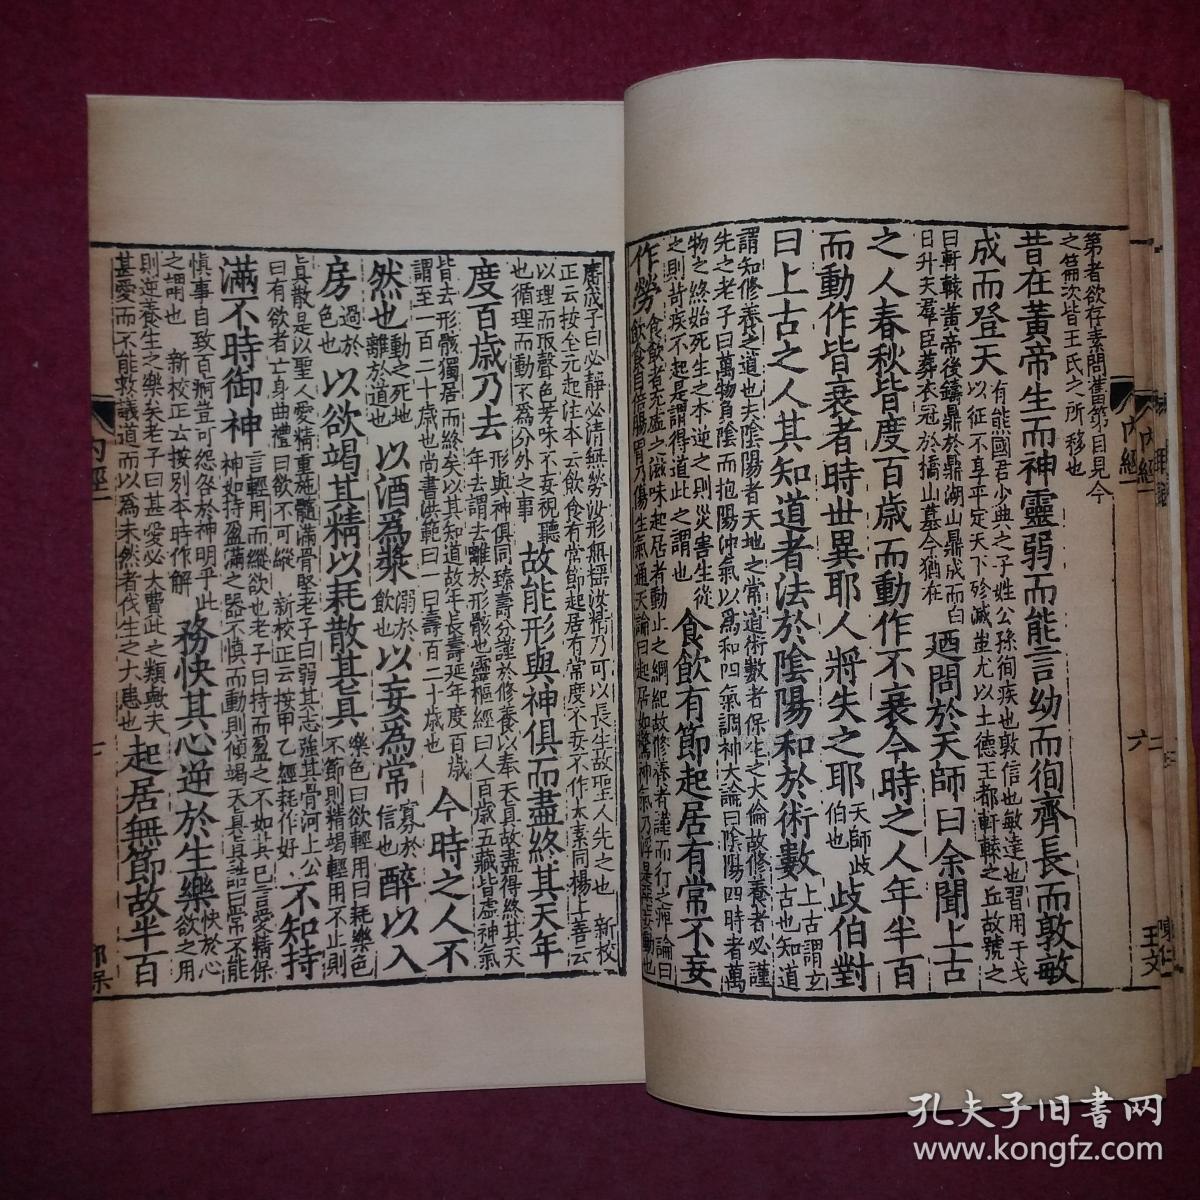 第者欲存素問舊第目見今
之篇次皆王氏之所移也
昔在黃帝生而神靈弱而能言幼而徇齊長而敦敏
成而登天
有熊國君少典之子姓公孫徇疾也敦信也敏達也習用干戈
以征不享平定天下殄滅蚩尤以土德王都軒轅之丘故號之
曰軒轅黃帝後鑄鼎於鼎湖山鼎成而白
日升天羣臣葬衣冠於橋山墓今猶在
迺問於天師曰余聞上古
之人春秋皆度百歲而動作不衰今時之人年半百
而動作皆衰者時世異耶人將失之耶
天師歧
伯也
歧伯對
曰上古之人其知道者法於陰陽和於術數
上古謂玄
古也知道
謂知修養之道也夫陰陽者天地之常道術數者保生之大倫故修養者必謹
先之老子曰萬物負陰而抱陽沖氣以為和四氣調神大論曰陰陽四時者萬
物之終始死生之本逆之則災害生從
之則苛疾不起是謂得道此之謂也
食飲有節起居有常不妄
作勞
食飲者充虛之滋味起居者動止之綱紀故修養者謹而行之痺論曰
飲食自倍腸胃乃傷生氣通天論曰起居如驚神氣乃浮是惡妄動也
廣成子曰必靜必清無勞汝形無搖汝精乃可以長生故聖人先之也 新校
正云按全元起注本云飲食有常節起居有常度不妄不作太素同楊上善云
以理而取聲色芳味不妄視聽
也循理而動不為分外之事
故能形與神俱而盡終其天年
度百歲乃去
形與神俱同臻壽分謹於修養以奉天真故盡得終其天
年去謂去離於形骸也靈樞經曰人百歲五藏皆虛神氣
皆去形骸獨居而終矣以其知道故年長壽延年度百歲
謂至一百二十歲也尚書洪範曰一曰壽百二十歲也
今時之人不
然也
動之死地
離於道也
以酒為漿
溺於
飲也
以妄為常
寡於
信也
醉以入
房
過於
色也
以欲竭其精以耗散其真
樂色曰欲輕用曰耗樂色
不節則精竭輕用不止則
真散是以聖人愛精重施髓滿骨堅老子曰弱其志強其骨河上公
曰有欲者亡身曲禮曰欲不可縱 新校正云按甲乙經耗作好
不知持
滿不時御神
言輕用而縱欲也老子曰持而盈之不如其已言愛精保
神如持盈滿之器不慎而動則傾竭天真真誥曰常不能
慎事自致百痾豈可怨咎於神明乎此
之謂也 新校正云按別本時作解
務快其心逆於生樂
快於心
欲之用
則逆養生之樂矣老子曰甚愛必大費此之類歟夫
甚愛而不能救議道而以為未然者伐生之大患也
起居無節故半百
內經一
六
王文
內經一
孔夫子旧書网
www.kongfz.com